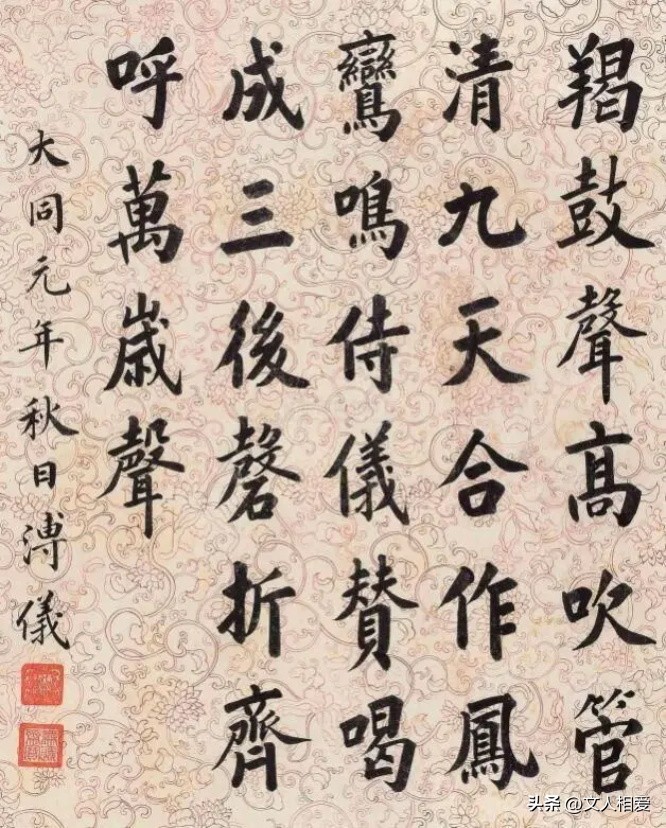 羯鼓聲高吹管
清九天合作鳳
鸞鳴侍儀賛喝
成三後磬折齊
呼萬歳聲
大同元年秋日溥儀
头条 @文人相爱